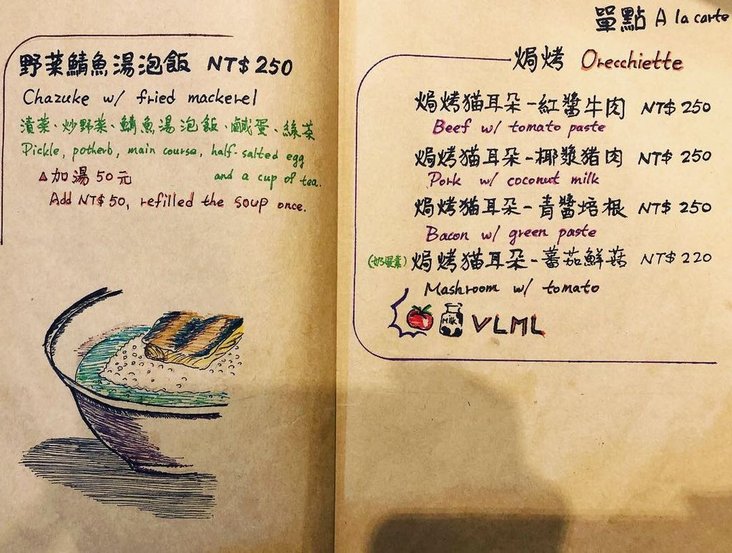 野菜鯖魚湯泡飯 NT$250
Chazuke w/ fried mackerel
漬菜、炒野菜、鯖魚湯泡飯、鹹蛋、綠茶
Pickle, potherb, main course, half-salted egg
and a cup of tea.
△加湯50元
Add NT$50, refilled the soup once.
單點 A la carte
焗烤 Orecchiette
焗烤猫耳朵-紅醬牛肉 NT$250
Beef w/ tomato paste
焗烤猫耳朵-椰漿豬肉 NT$250
Pork w/ coconut milk
焗烤猫耳朵-青醬培根 NT$250
Bacon w/ green paste
(奶蛋素) 焗烤猫耳朵-蕃茄鮮菇 NT$220
Mashroom w/ tomato
Milk VLML